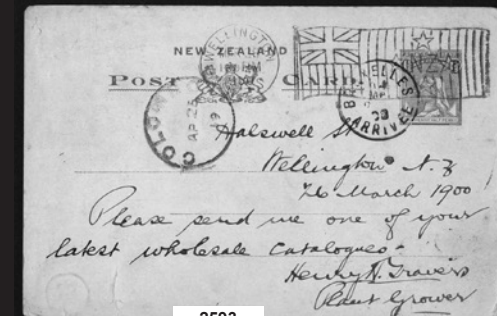 WELLINGTON
NEW ZEALAND
POST CARD
COLOMBO
AP 25
BRUXELLES
ARRIVEE
Halswell St
Wellington N.Z
26 March 1900
Please send me one of your
latest wholesale catalogues -
Henry H. Travers
Plant Grower